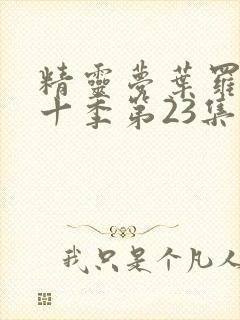 精靈夢葉羅
十季第23集
我只是个凡人